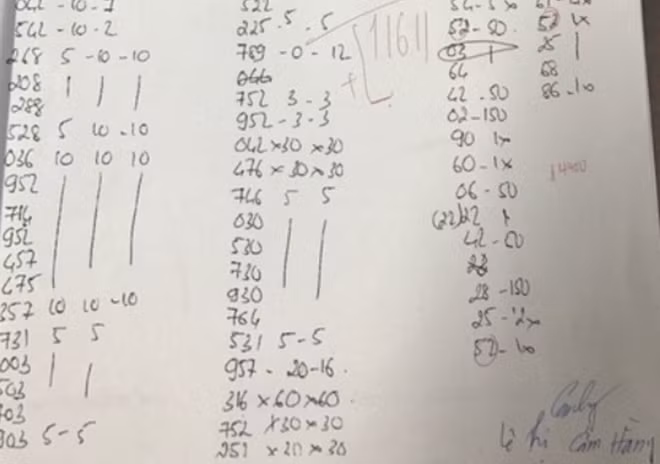 542-10-2
268 5-10-10
208
288
528 5 10-10
036 10 10 10
952
714
952
457
475
357 10 10-10
731 5 5
003
503
703
903 5-5
522
225-5-5
789-0-12
752 3-3
952-3-3
042x30x30
476x30x30
746 5 5
030
530
730
930
764
531 5-5
957-20-16.
316x60x60.
752x30x30
251x20x30
11611
52-50
03
64
42-50
02-150
90 1x
60-1x
06-50
(22)22
42-50
28-150
25-2x
52-1x
52 1x
25
68
86-1x
Lê thị Cẩm Hằng